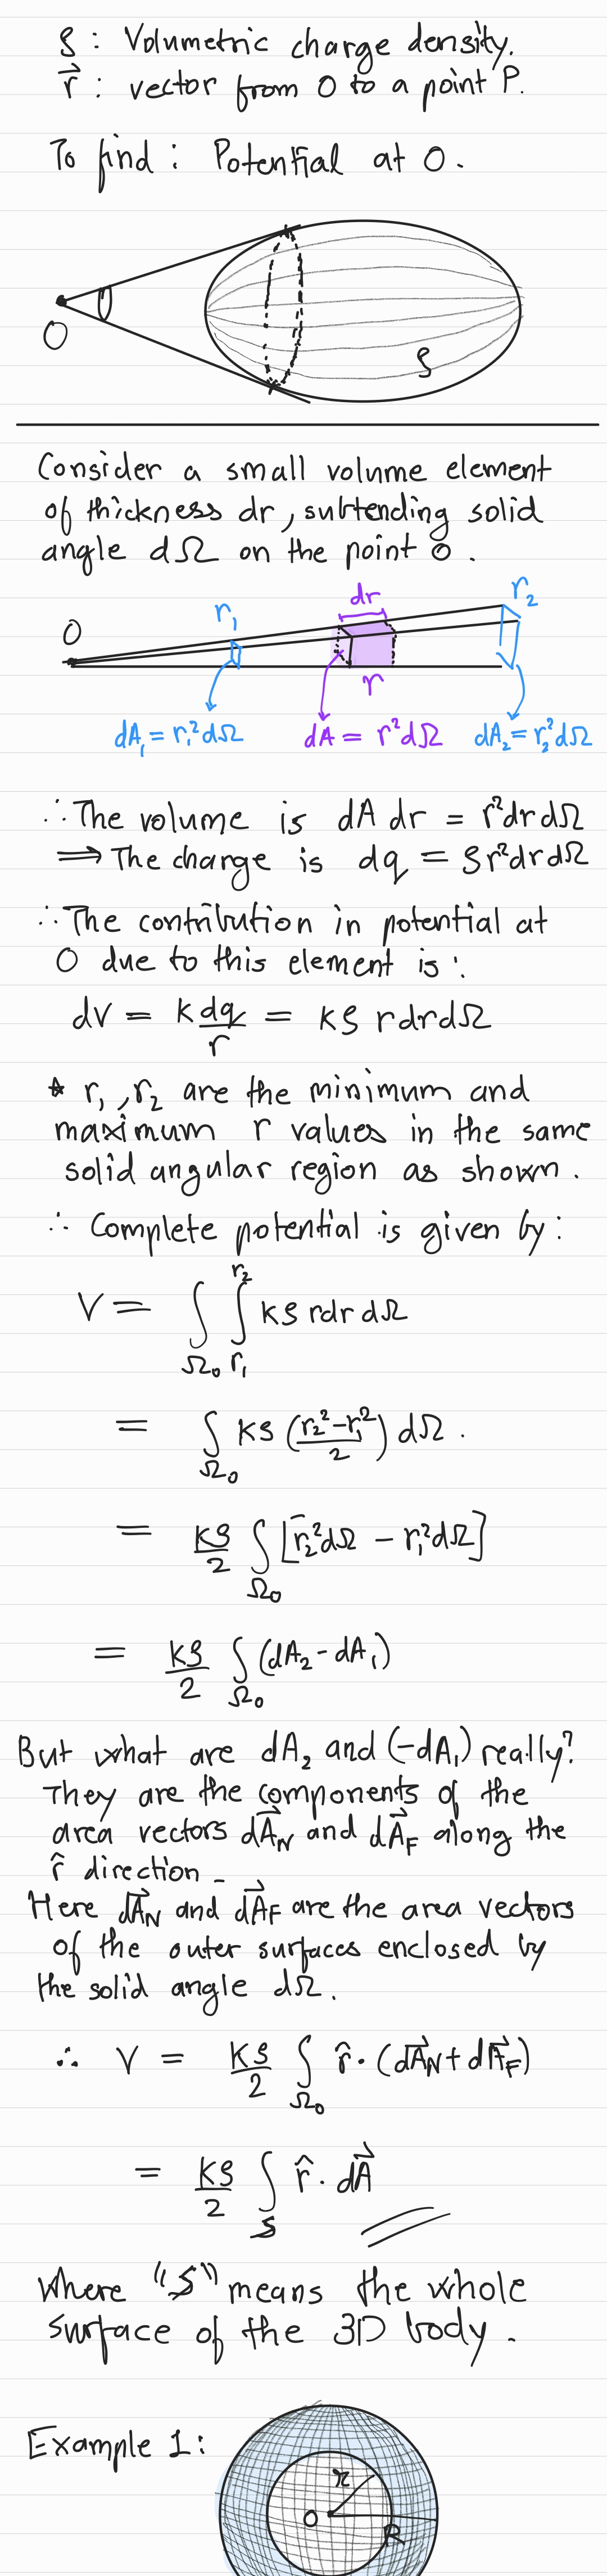 ρ : Volumetric charge density.
r⃗ : vector from O to a point P.
To find : Potential at O.
O
ρ
Consider a small volume element
of thickness dr, subtending solid
angle dΩ on the point O.
dr
r₂
r₁
O
r
dA₁ = r₁²dΩ
dA = r²dΩ
dA₂ = r₂²dΩ
∴ The volume is dA dr = r²drdΩ
⟹ The charge is dq = ρr²drdΩ
∴ The contribution in potential at
O due to this element is :
dV = kdq/r = kρ rdrdΩ
* r₁, r₂ are the minimum and
maximum r values in the same
solid angular region as shown.
∴ Complete potential is given by :
V = ∫_Ω₀ ∫_r₁^r₂ kρ rdr dΩ
= ∫_Ω₀ kρ ((r₂²-r₁²)/2) dΩ.
= kρ/2 ∫_Ω₀ [r₂²dΩ - r₁²dΩ]
= kρ/2 ∫_Ω₀ (dA₂-dA₁)
But what are dA₂ and (-dA₁) really?
They are the components of the
area vectors dA⃗_N and dA⃗_F along the
r̂ direction
Here dA⃗_N and dA⃗_F are the area vectors
of the outer surfaces enclosed by
the solid angle dΩ.
∴ V = kρ/2 ∫_Ω₀ r̂·(dA⃗_N+dA⃗_F)
= kρ/2 ∫_S r̂·dA⃗
Where "S" means the whole
surface of the 3D body.
Example 1:
r
O
R